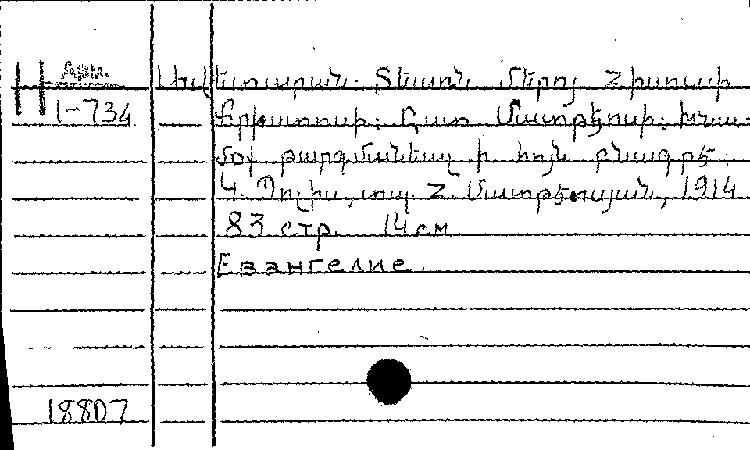 Арм.
H
1-734
Աւետարան Տեառն մերոյ Յիսուսի
Քրիստոսի: Ըստ Մատթէոսի: Խնա-
մով թարգմանեալ ի հոյն բնագրէ
Կ. Պոլիս, տպ. Յ. Մատթէոսյան, 1914
83 стр. 14 см
Евангелие
18807